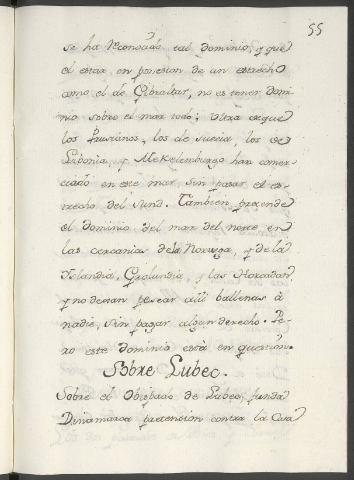 55
se ha reconocido tal dominio, y que
el estar en posesion de un estrecho
como el de Gibraltar, no es tener domi-
nio sobre el mar todo; ultra de que
los Prusianos, los de suecia, los de
Libonia, y Mekelemburgo han comer-
ciado en este mar, sin pasar el es-
trecho del Sund. Tambien pretende
el dominio del mar del norte en
las cercanias de la Noruega, y de la
Islandia, Groelandia, y las Horcadas
y no dexan pescar alli ballenas à
nadie, sin pagar algun derecho. Pe-
ro este dominio està en question.
Sobre Lubec.
Sobre el Obispado de Lubec, funda
Dinamarca pretension contra la Casa